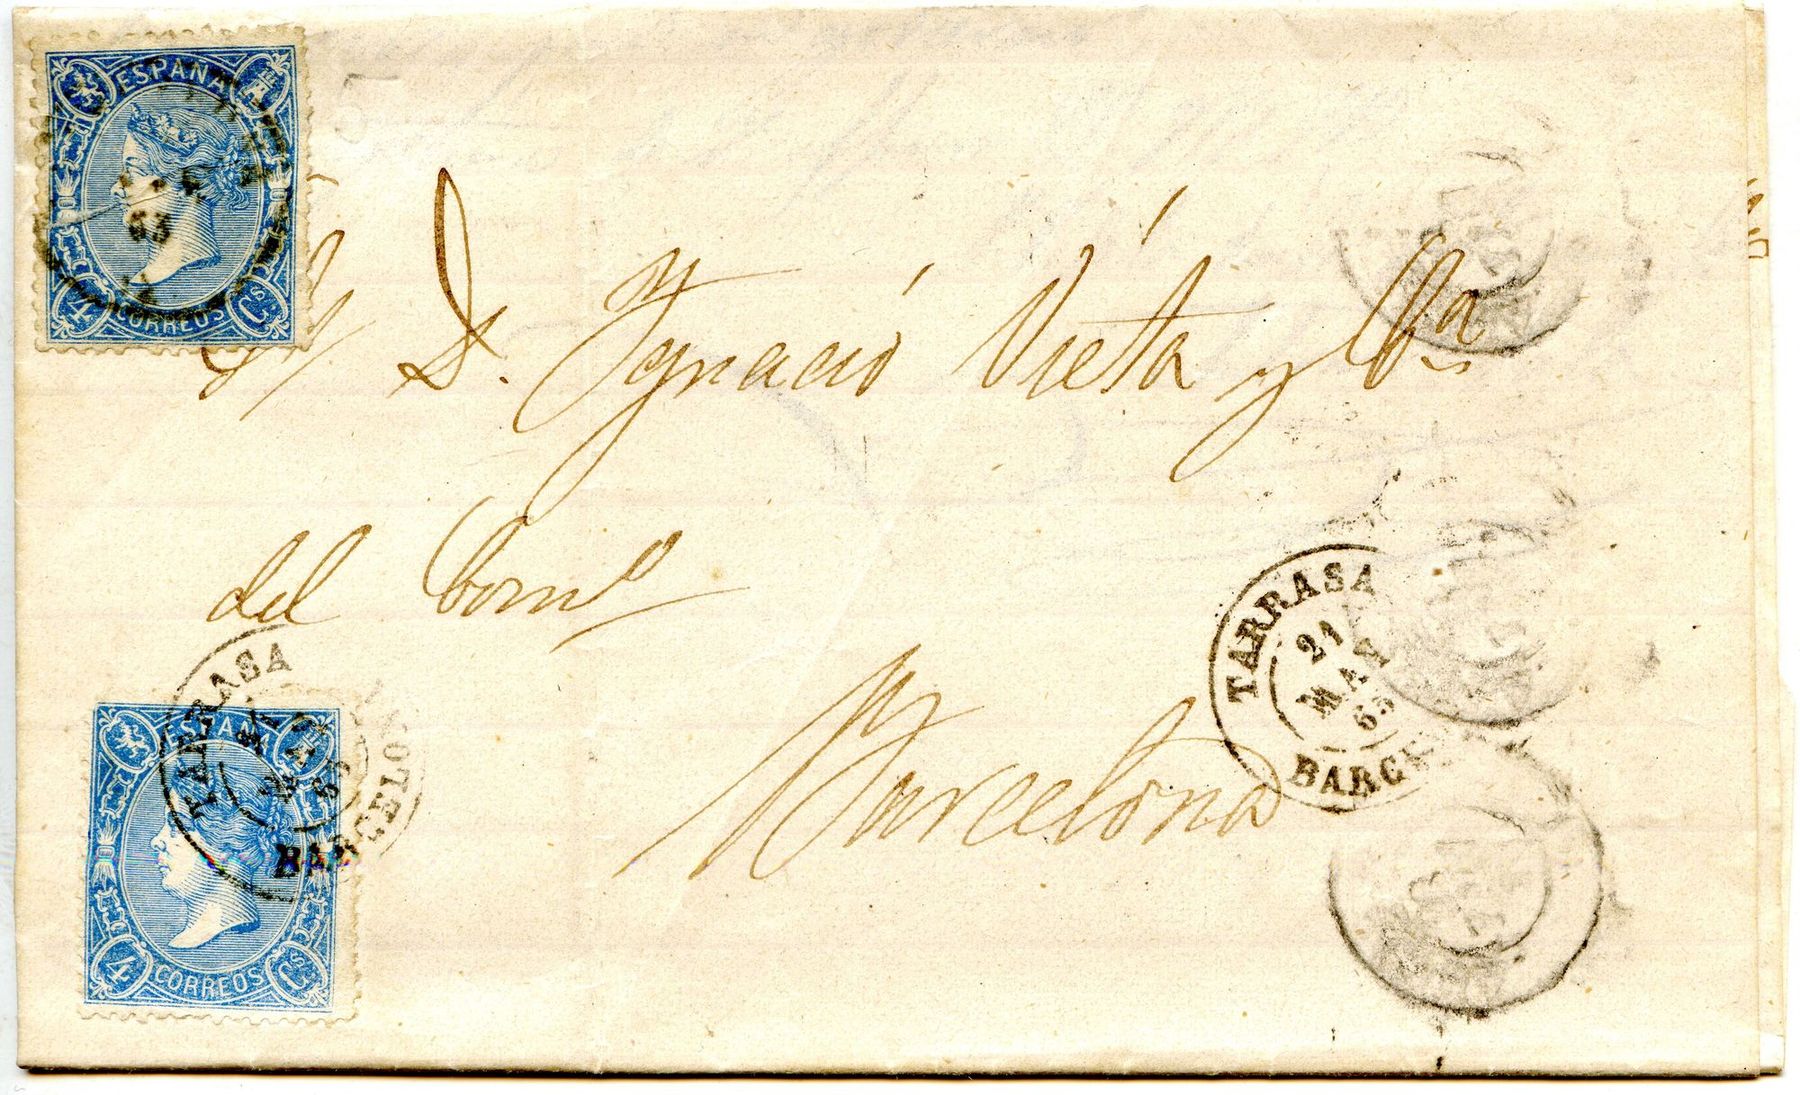 ESPAÑA
CORREOS
4 Cs
D. Ygnacio Vieta y Ca
del Como
Barcelona
TARRASA
21
MAY
65
BARCE
TARRASA
MAY
65
BARCELON
ESPAÑA
CORREOS
4 Cs